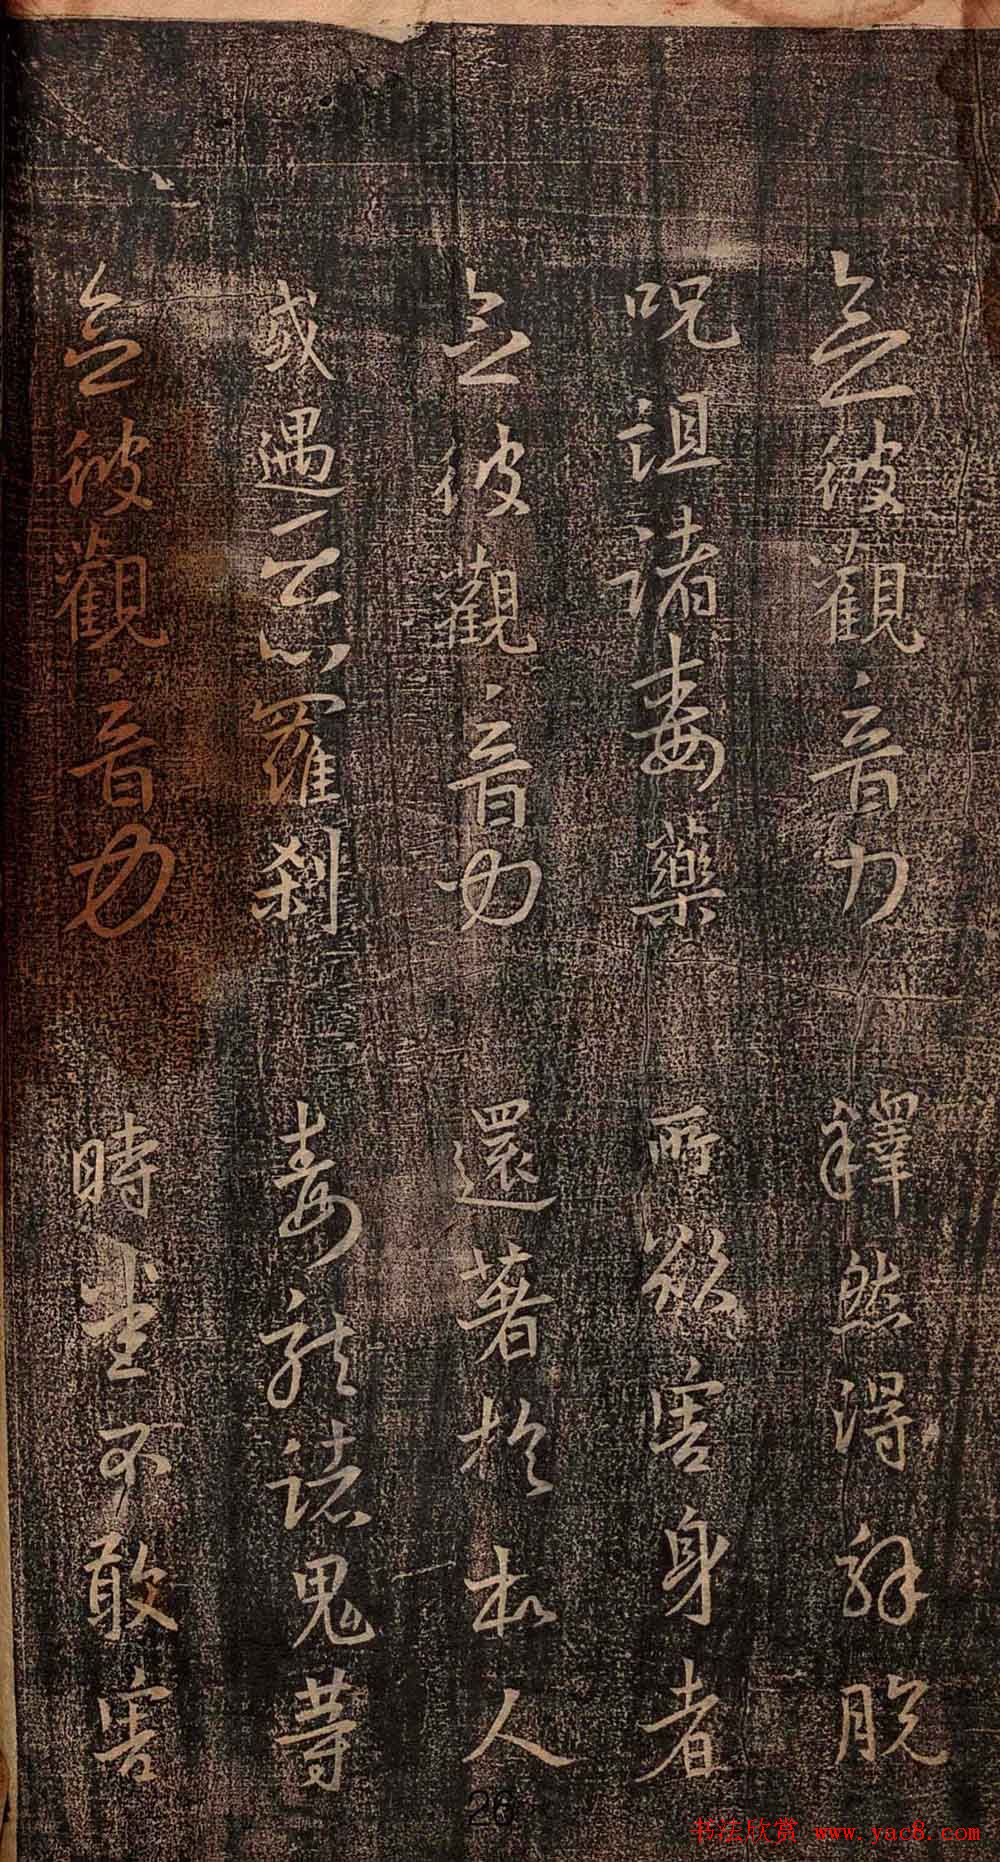 念彼觀音力 釋然得解脫
呪詛諸毒藥 所欲害身者
念彼觀音力 還著於本人
或遇惡羅剎 毒龍諸鬼等
念彼觀音力 時悉不敢害
26
书法欣赏 www.yac8.com